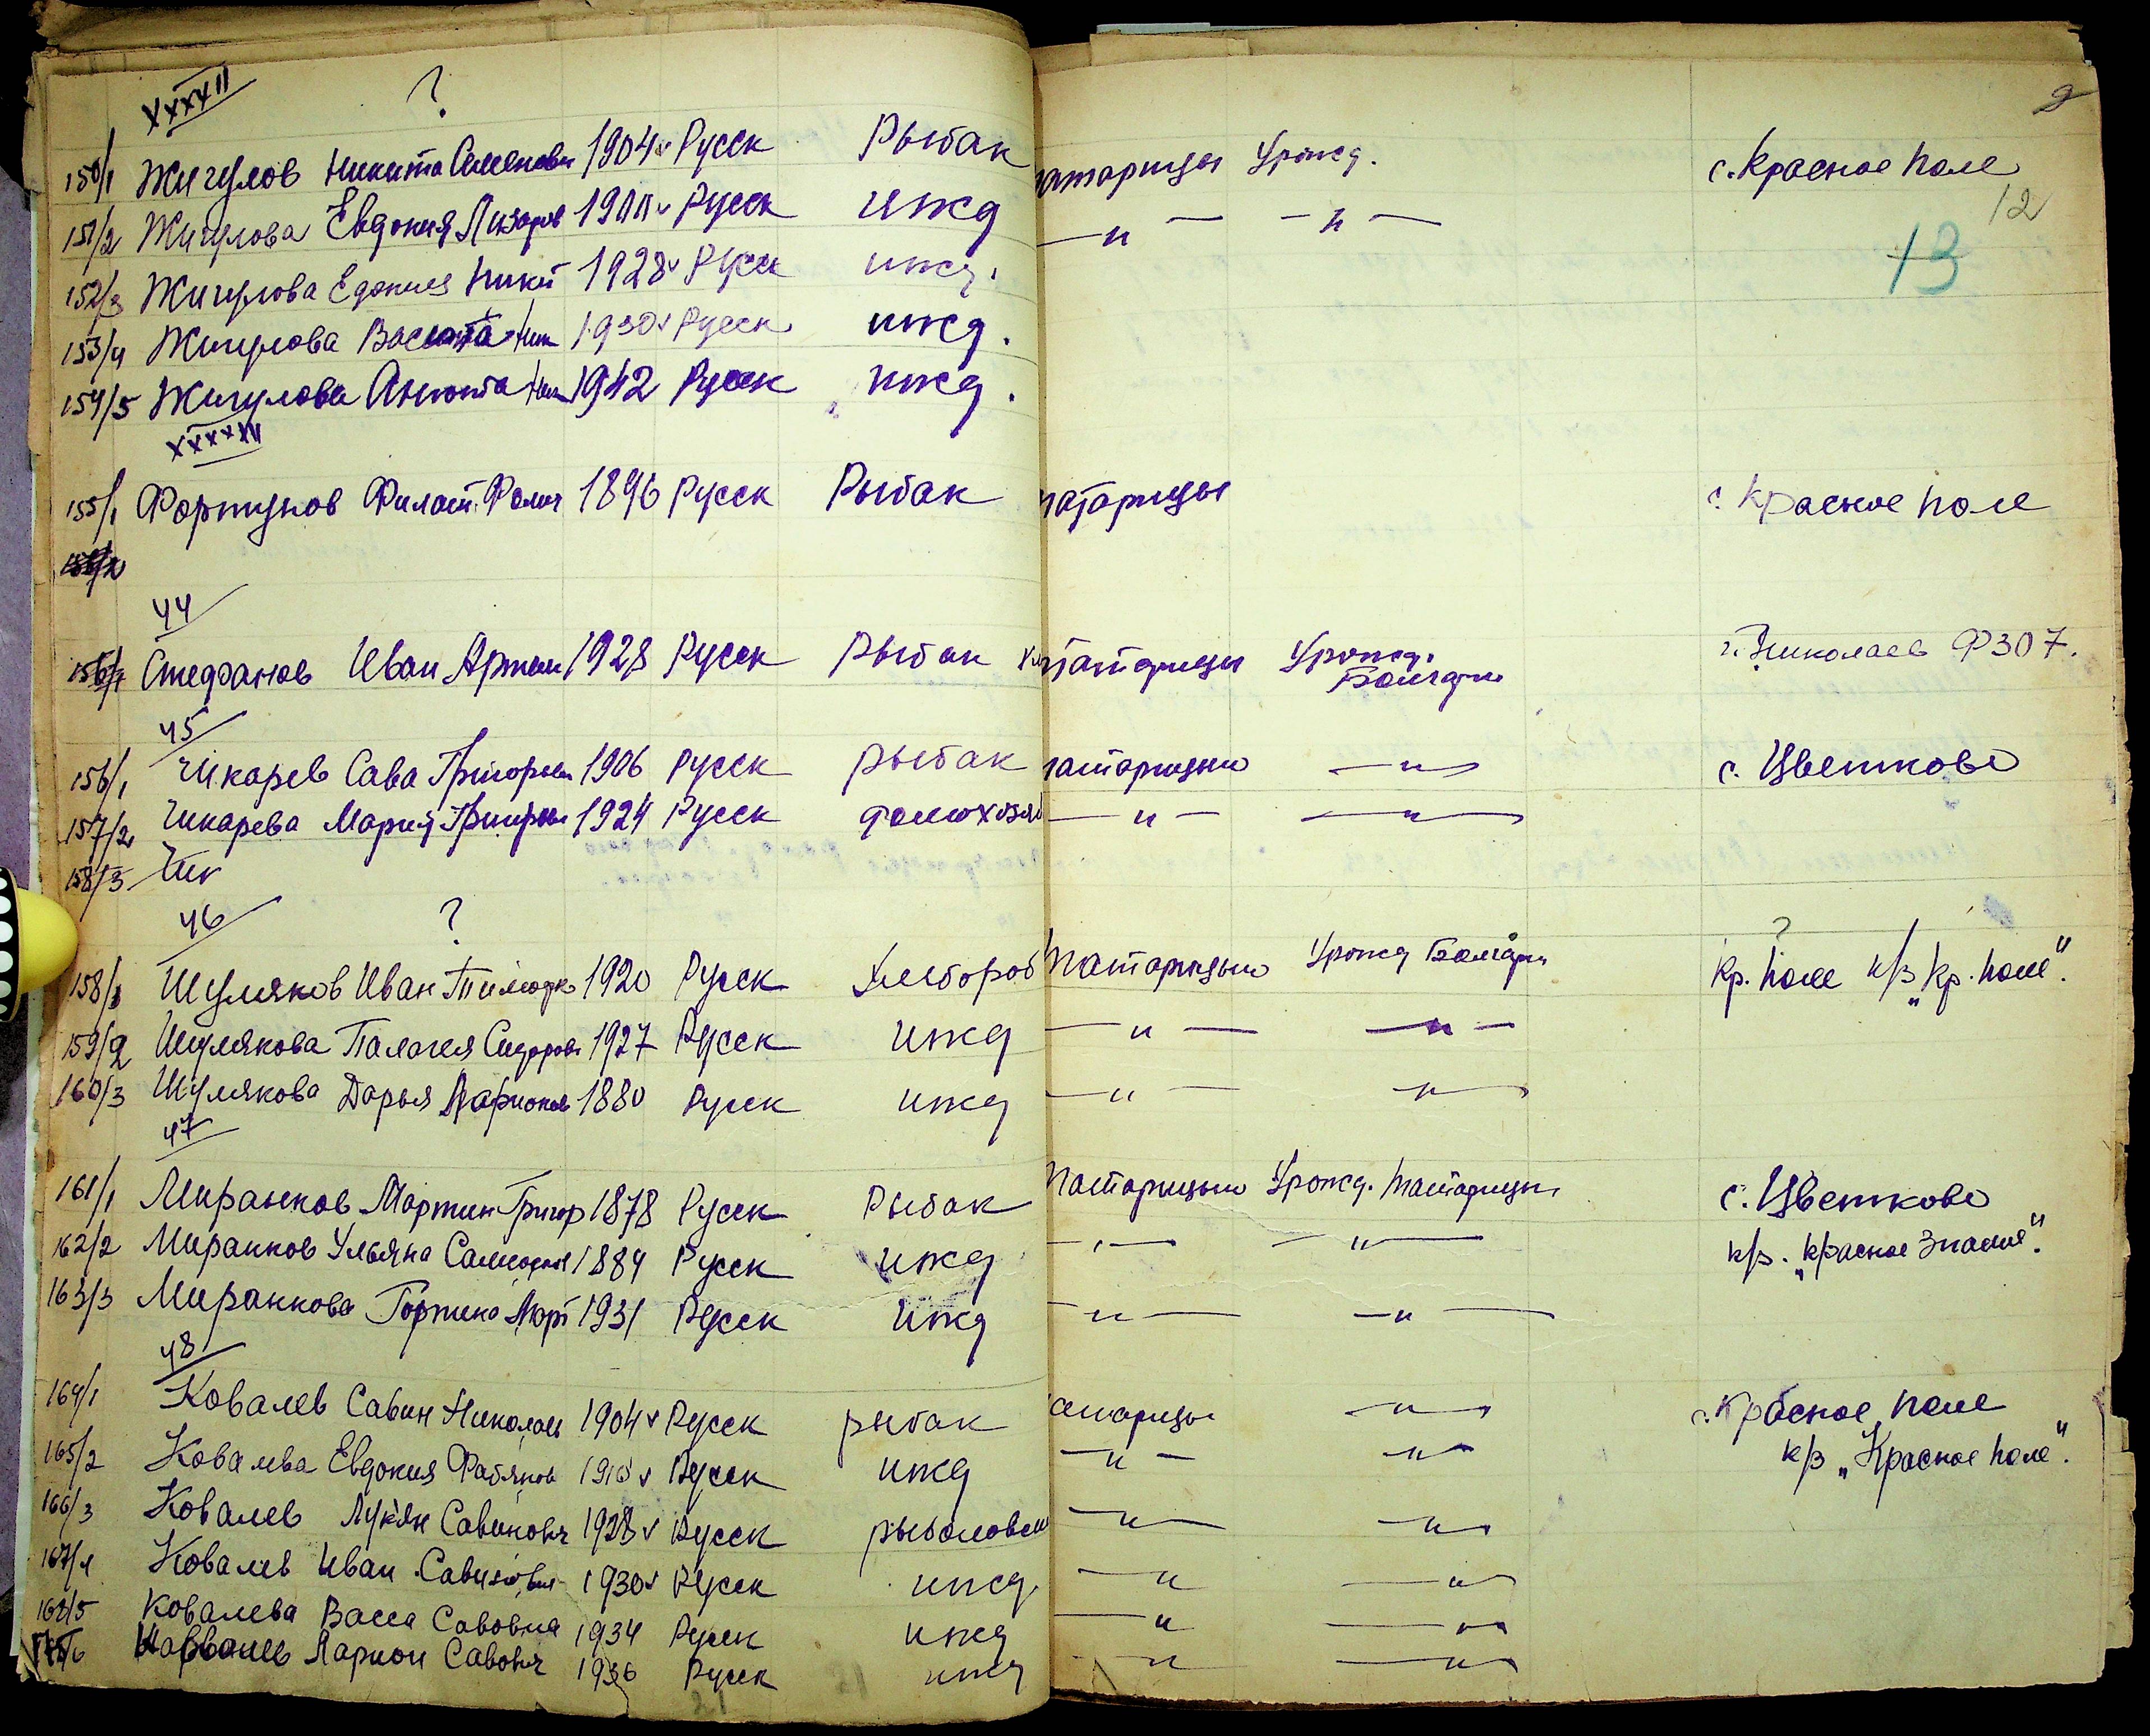 XXXXII ?
150/1 Жигулов Никита Семенови 1904 v Русск Рыбак татарицы Урожд. с. Красное поле
12
151/2 Жигулова Евдокия Лизаров v Русск ижд —〃— —〃—
13
152/3 Жигулова Едокия Никит 1928 v Русск ижд.
153/4 Жигулова Ник 1930 v Русск ижд.
154/5 Жигулова Анюта Ник 1942 Русск ижд.
155/1 Фортунов Филат 1896 Русск Рыбак татарицы с. Красное поле
44
Стефанов Иван Артем 1928 Русск Рыбак татарицы Урожд. Болгари г. Николаев Ф307.
45
156/1 Чикарев Сава Григорьеви 1906 Русск рыбак татарицыи —〃— с. Цветково
157/2 Чикарева Мария 1924 Русск домохозяй —〃— —〃—
158/3 Чик
46 ? ?
158/1 Шуляков Иван Тимофе 1920 Русск Хлебороб Татарицыи Урожд Болгари Кр. поле к/з „Кр. поле".
159/2 Шулякова Палагея Сидоров 1927 Русск ижд —〃— —〃—
160/3 Шулякова Дарья Ларионов 1880 Русск ижд —〃— —〃—
47
161/1 Миранков Мартин Григор 1878 Русск Рыбак Татарицыи Урожд. Татарицы с. Цветково
162/2 Миранков Ульяна 1884 Русск ижд —〃— —〃— к/з. „Красное Знамя".
163/3 Миранкова Март 1931 Русск ижд —〃— —〃—
48
164/1 Ковалев Савин Николаев 1904 v Русск рыбак татарицы —〃— с. Красное поле
165/2 Ковалева Евдокия Фабянов v Русск ижд —〃— —〃— к/з „Красное поле".
166/3 Ковалев Лукян Савинович 1928 v Русск рыболовец —〃— —〃—
167/4 Ковалев Иван Савинови 1930 v Русск ижд. —〃— —〃—
168/5 Ковалева Васса Савовна 1934 Русск ижд —〃— —〃—
Ларион Савович 1936 Русск ижд —〃— —〃—